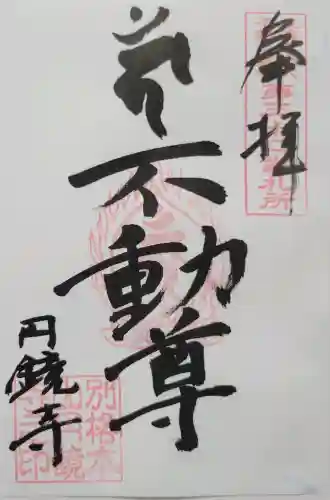 奉拝
不動尊
円鏡寺
別格本
山円鏡
寺之印